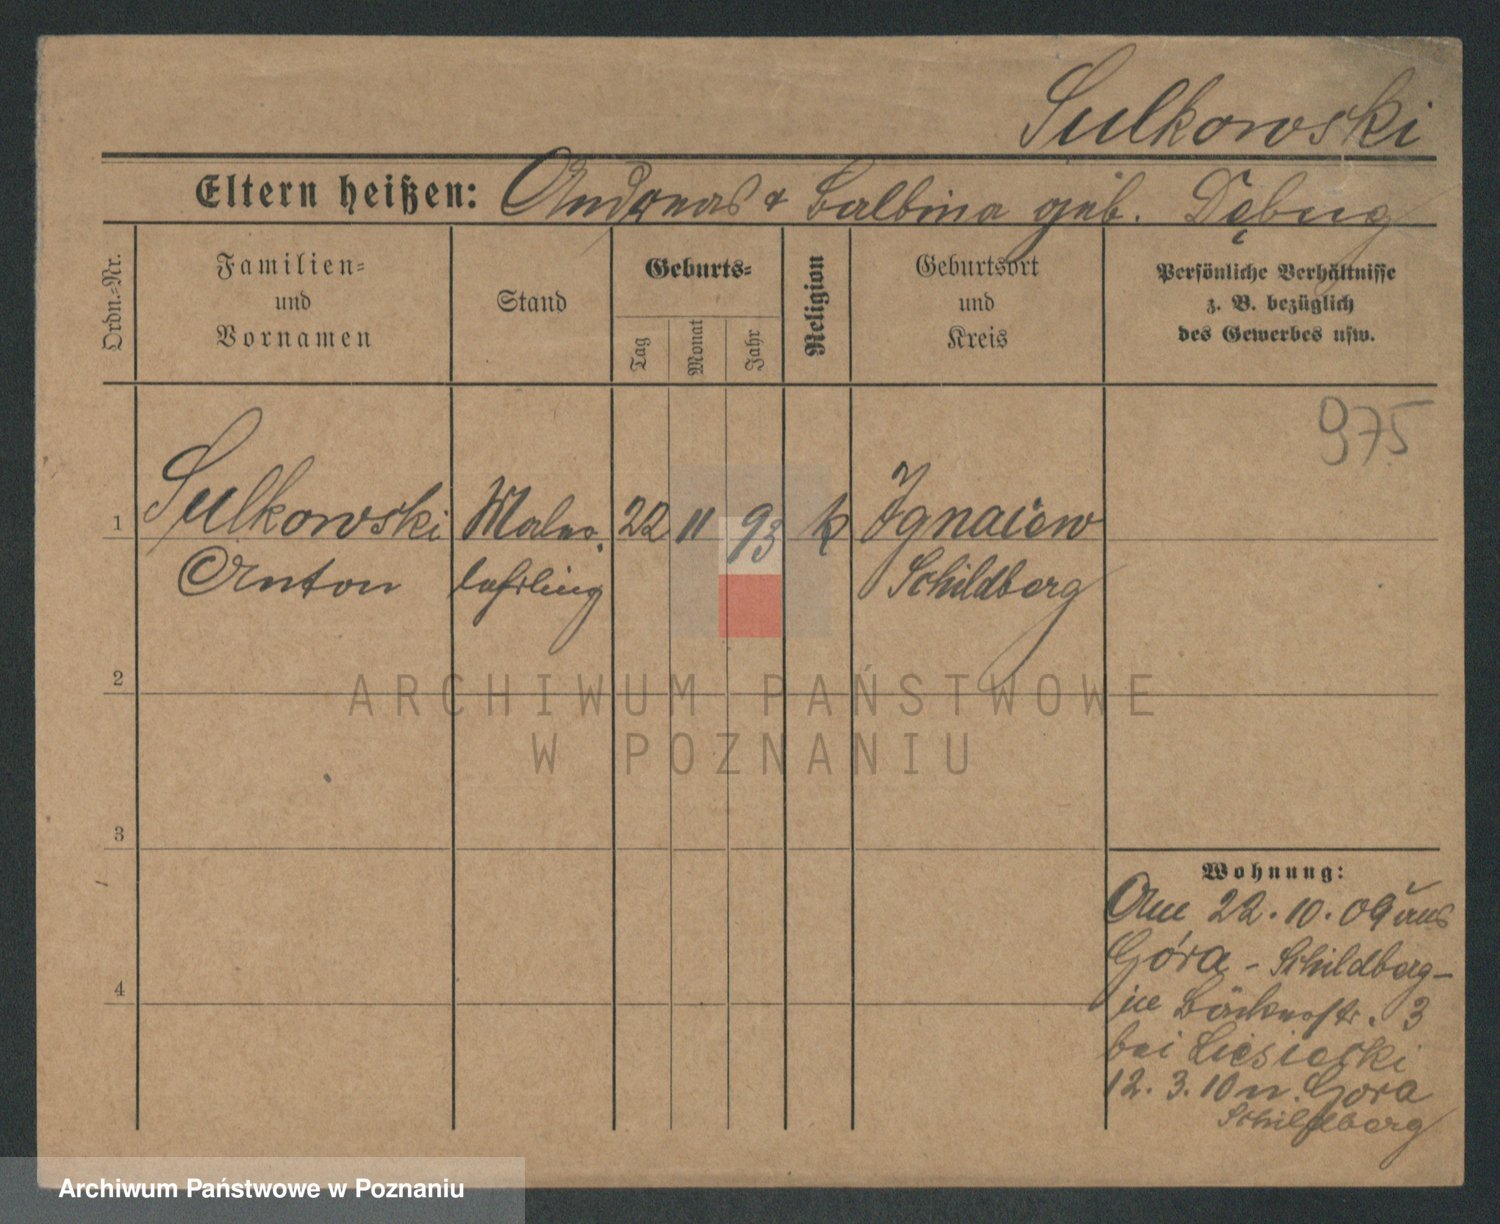 Sulkowski
Eltern heißen: Andreas & Balbina geb.
Ordn.-Nr.
Familien-
und
Vornamen
Stand
Geburts-
Tag
Monat
Jahr
Religion
Geburtsort
und
Kreis
Persönliche Verhältnisse
z. B. bezüglich
des Gewerbes usw.
975
1 Sulkowski Maler. 22 11 93 k Ignaiew
Anton lehrling Schildberg
2
ARCHIWUM PAŃSTWOWE
W POZNANIU
3
Wohnung:
Am 22.10.09 aus
Góra - Schildberg -
in Bäckerstr. 3
bei
4
12.3.10 n. Gora
Schildberg
Archiwum Państwowe w Poznaniu